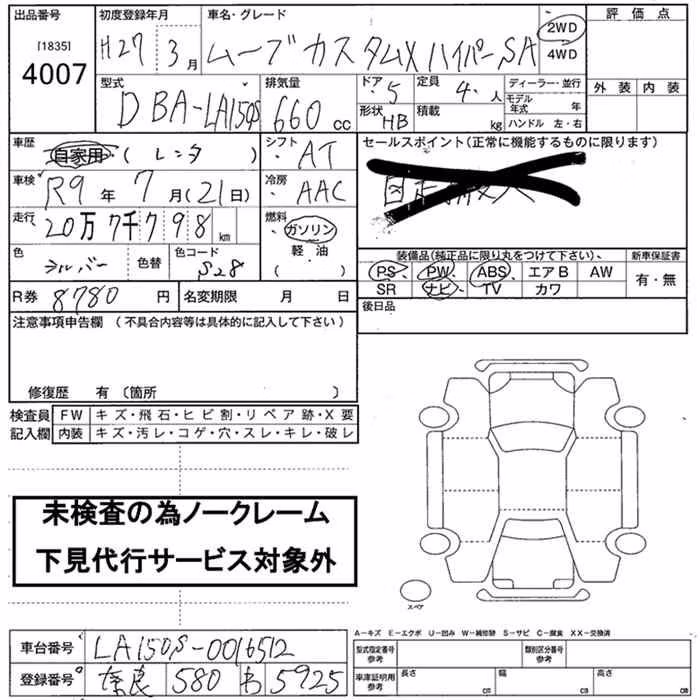 出品番号 初度登録年月 車名・グレード 評価点
[1835] 4007 H27 3月 ムーブカスタムX ハイパーSA 2WD 4WD
外装 内装
型式 排気量 ドア 5 定員 4.人 ディーラー・並行
DBA-LA150S 660 cc 形状 HB 積載 kg モデル年式 年
ハンドル 左・右
車歴 自家用・(レンタ) シフト AT セールスポイント(正常に機能するものに限ります)
車検 R9年 7月(21日) 冷房 AAC
走行 20万7千798 km 燃料 ガソリン
軽油
( )
色 シルバー 色替 色コード S28
装備品(純正品に限り丸をつけて下さい)、 新車保証書
PS PW ABS エアB AW 有・無
SR ナビ TV カワ
R券 8780 円 名変期限 月 日
後日品
注意事項申告欄(不具合内容等は具体的に記入して下さい)
修復歴 有〔箇所 〕
検査員 FW キズ・飛石・ヒビ割・リペア跡・X要
記入欄 内装 キズ・汚レ・コゲ・穴・スレ・キレ・破レ
未検査の為ノークレーム
下見代行サービス対象外
スペア
A-キズ E-エクボ U-凹み W-補修跡 S-サビ C-腐食 XX-交換済
車台番号 LA150S-0016512 型式指定番号 参考 類別区分番号 参考
登録番号 奈良 580 わ 5925 車庫証明用 参考 長さ cm 幅 cm 高さ cm